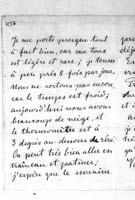 Je me porte presque tout
à fait bien, car ma toux
est légère et rare; je tousse
à peu près 8 fois par jour.
Nous ne sortons pas encore,
car le temps est froid;
aujourd'hui nous avons
beaucoup de neige, et
le thermomètre est à
3 degrés au-dessous de zéro.
On peut très bien aller en
traineau et patiner;
j'espère que la semaine